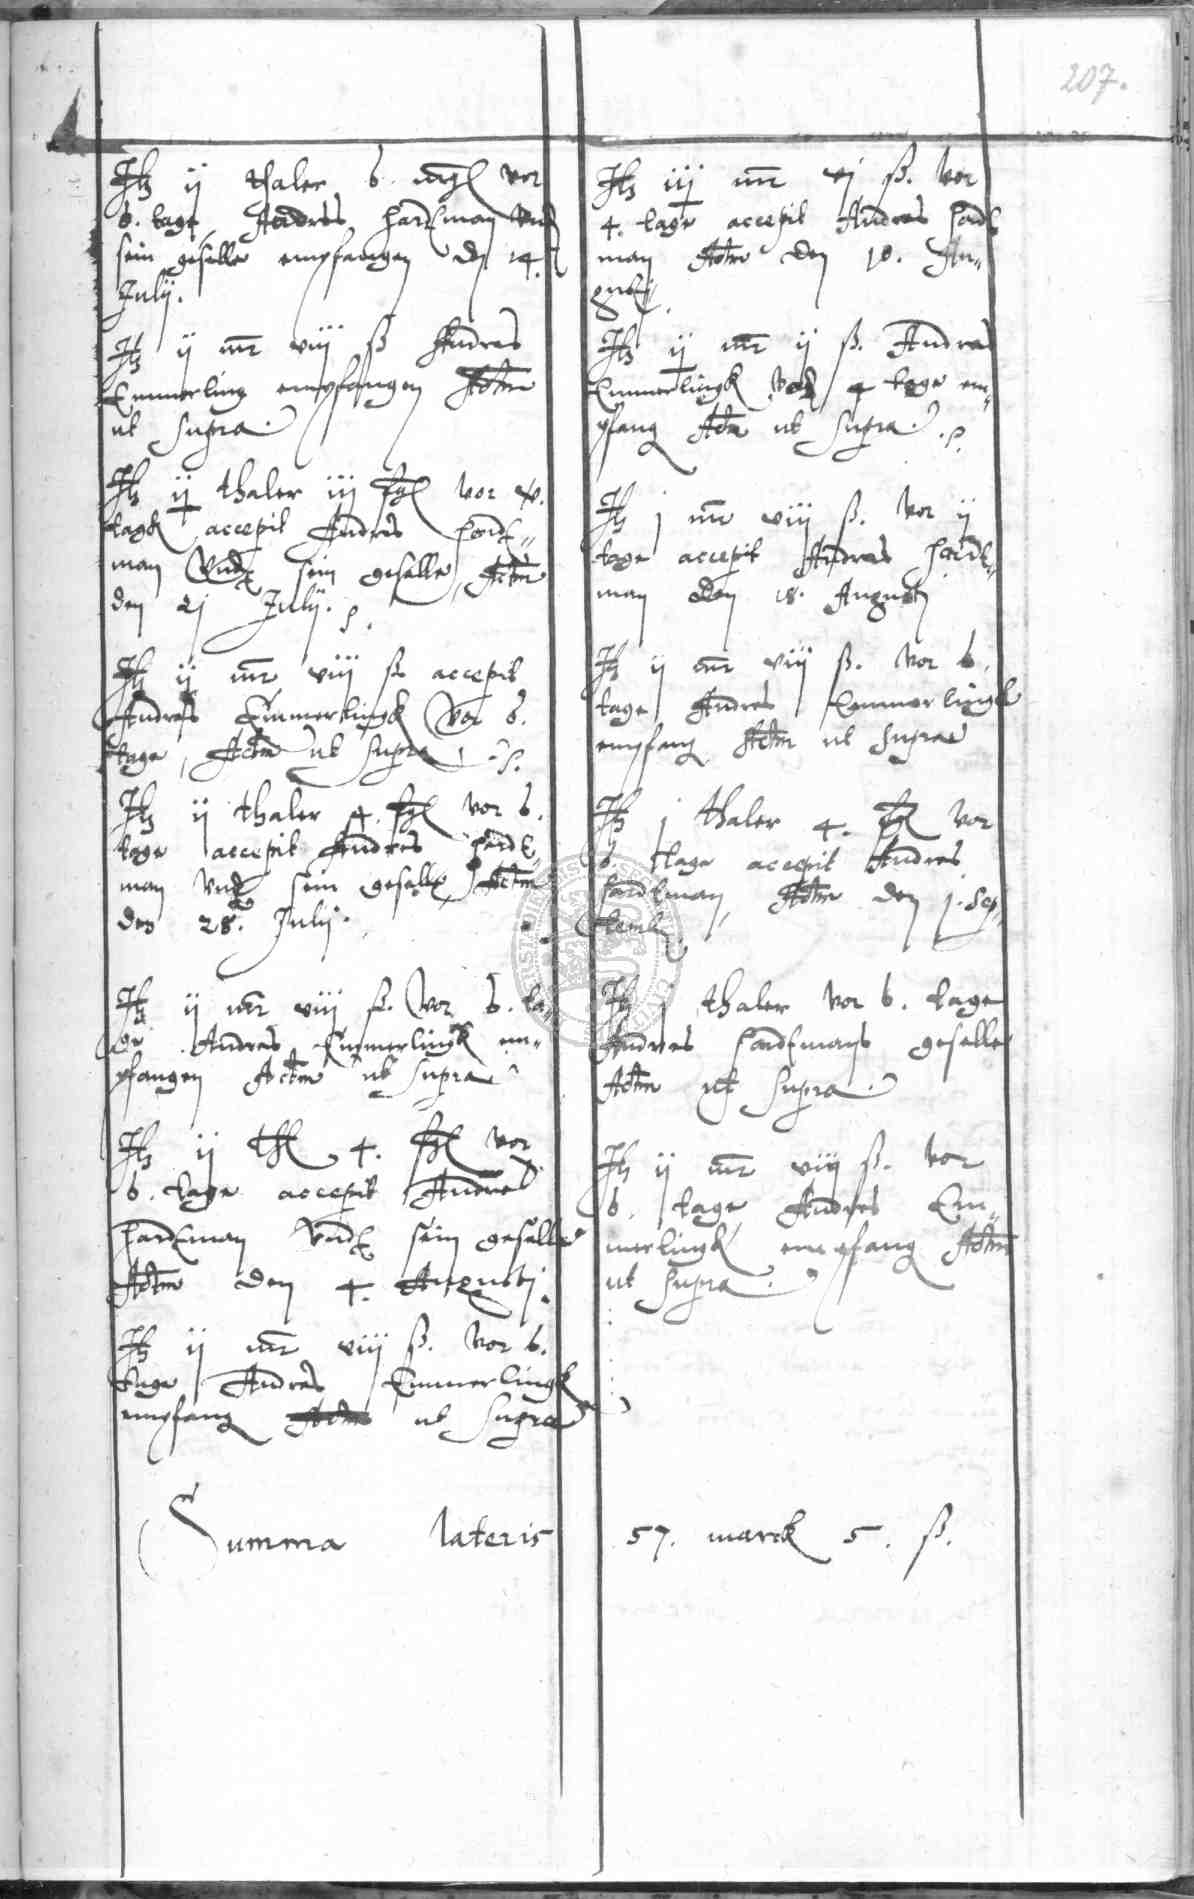 207.
Itz ij thaler 6. vor
6. tage, Andres Hardtman Vnd
sein geselle empfangen den 14.
Julij.
Itz ij mr viij ß Andres
Emmerling empfangen Actm
ut supra.
Itz ij thaler iij fgl vor
tagk accepit Andres Hardt=
man Vndt sein geselle, Actm
den 21 Julij.
Itz ij mr viij ß accepit
Andreß Emmerlingk Vor 6.
tage, Actm ut supra
Itz ij thaler 4. fgl vor 6.
tage accepit Andres Hardt
man Vndt sein geselle, Actm
den 28. Julij.
Itz ij mr viij ß. Vor 6. ta=
ge Andres Emmerlingk em=
pfangen Actm ut supra
Itz ij thl 4. fgl vor
6. tage accepit Andres
Hardtman Vndt sein geselle
Actm den 4. Augustj.
Itz ij mr viij ß. Vor 6.
tage Andres Emmerlingk
empfang ut supra
Itz iij mr vj ß. Vor
4. tage accepit Andres Hardt
man Actm den 10. Au=
gustj.
Itz ij mr ij ß. Andres
Emmerlingk Vor 4 tage em=
pfang Actm ut supra.
Itz j mr viij ß. Vor ij
tage accepit Andres Hardt=
man den 18. Augustj
Itz ij mr viij ß. Vor 6.
tage Andres Emmerlingk
empfang Actm ut supra
Itz j thaler 4. fgl Vor
6 tage accepit Andres
Hardtman, Actm den 1. Sep=
temb
Itz j thaler Vor 6. tage
Andres Hardtmans geselle
Actm ut supra.
Itz ij mr viij ß. Vor
6. tage Andres Em=
merlingk empfang Actm
ut supra.
Summa lateris 57. marck 5. ß.